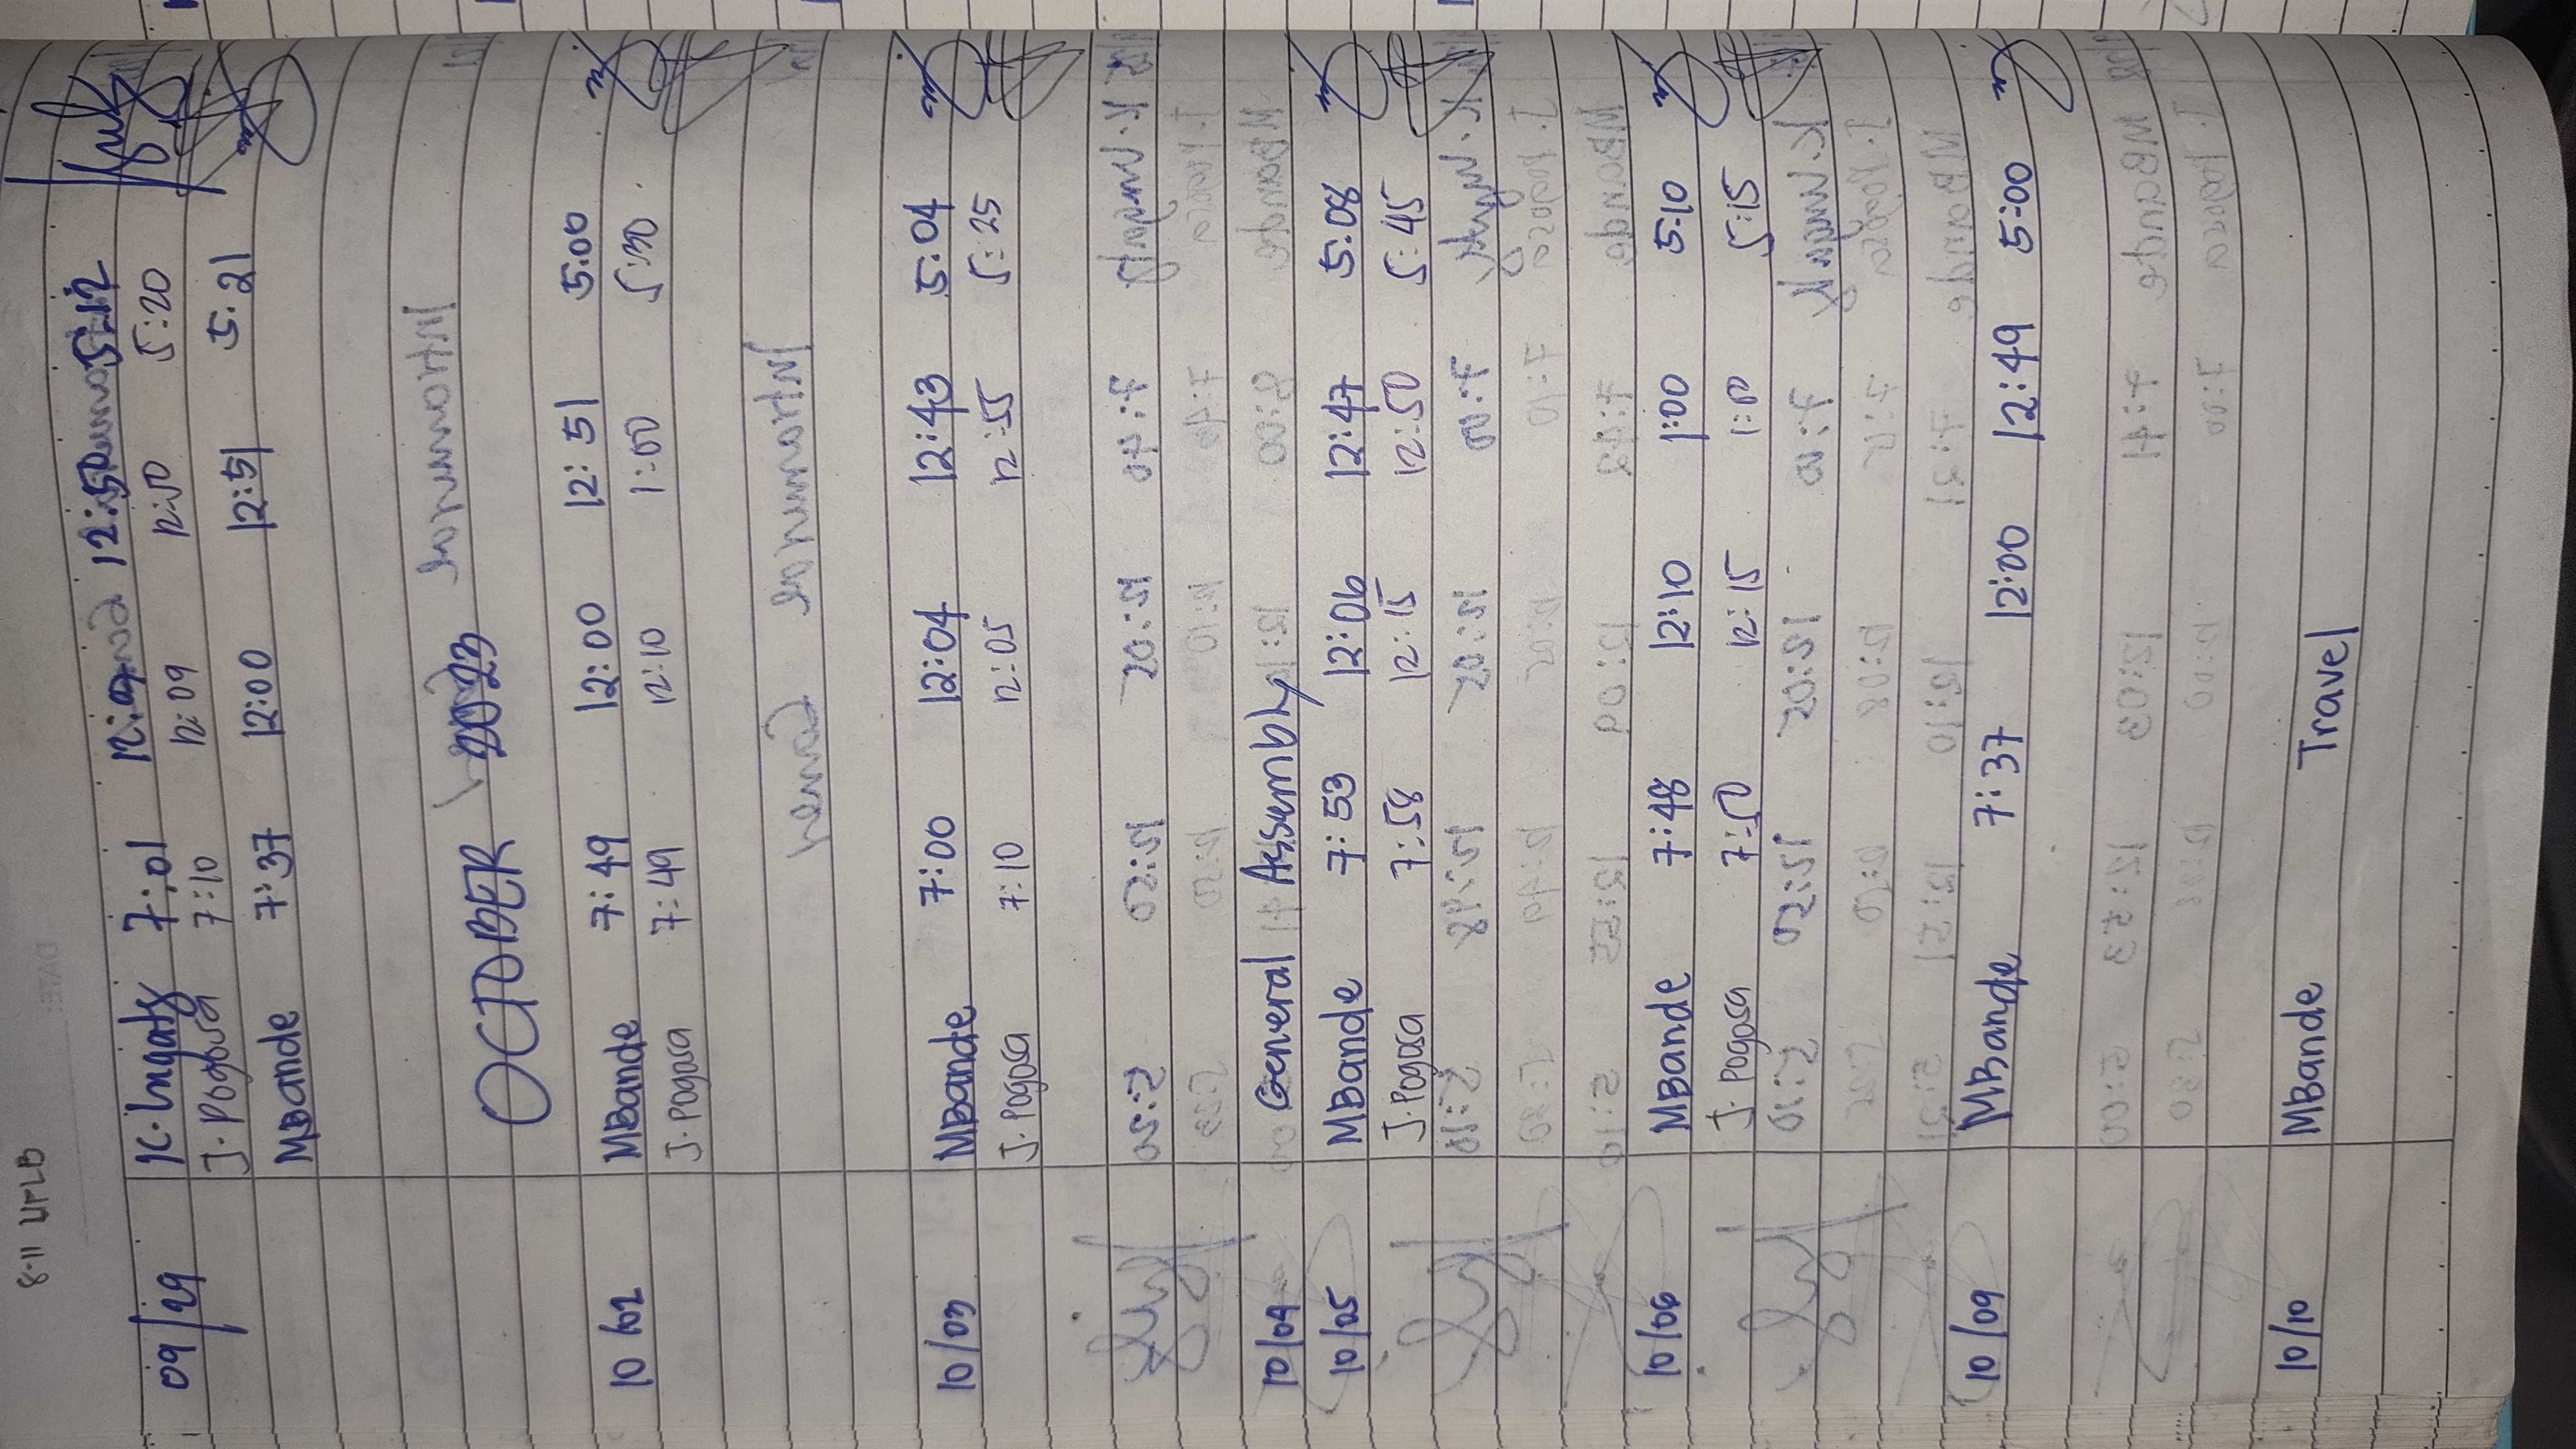 8-11 UPLB
09/29 K. Lingatz 7:01 12:07 12:50 5:12
J. Pogosa 7:10 12:09 12:50 5:20
MBande 7:37 12:00 12:51 5:21
OCTOBER 2023
10/02 MBande 7:49 12:00 12:51 5:00
J. Pogosa 7:49 12:10 1:00 5:30
10/03 MBande 7:00 12:04 12:43 5:04
J. Pogosa 7:10 12:05 12:55 5:25
10/04 General Assembly
10/05 MBande 7:53 12:06 12:47 5:08
J. Pogosa 7:58 12:15 12:50 5:45
10/06 MBande 7:48 12:10 1:00 5:10
J. Pogosa 7:50 12:15 1:00 5:15
10/09 MBande 7:37 12:00 12:49 5:00
10/10 MBande Travel